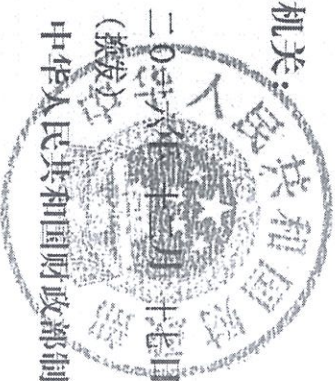 机关:
二〇 六年 月 十七日
(换发)
中华人民共和国财政部制
人民共和国财政部